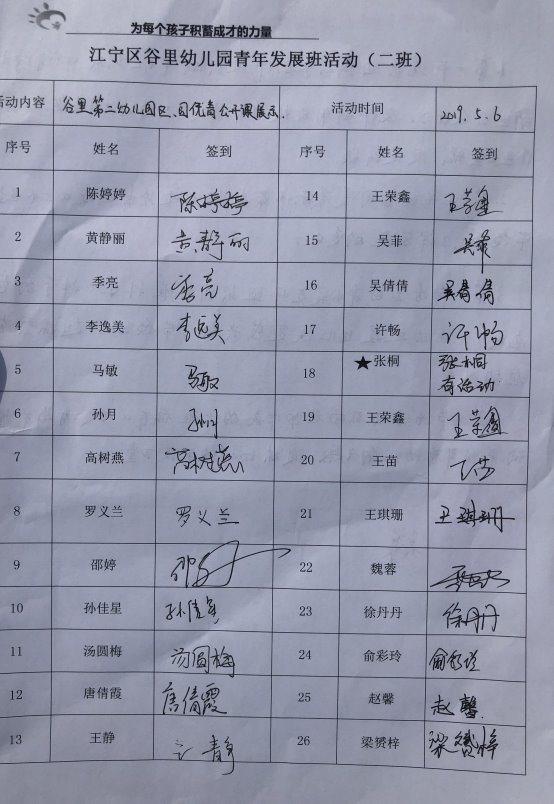 为每个孩子积蓄成才的力量
江宁区谷里幼儿园青年发展班活动（二班）
活动内容 谷里第二幼儿园区、园优青公开课展示. 活动时间 2019.5.6
序号 姓名 签到 序号 姓名 签到
1 陈婷婷 陈婷婷 14 王荣鑫 王荣鑫
2 黄静丽 黄静丽 15 吴菲 吴菲
3 季亮 季亮 16 吴倩倩 吴倩倩
4 李逸美 李逸美 17 许畅 许畅
5 马敏 马敏 18 ★张桐 张桐
有活动
6 孙月 孙月 19 王荣鑫 王荣鑫
7 高树燕 高树燕 20 王苗 王苗
8 罗义兰 罗义兰 21 王琪珊 王琪珊
9 邵婷 邵 22 魏蓉
10 孙佳星 孙佳星 23 徐丹丹 徐丹丹
11 汤圆梅 汤圆梅 24 俞彩玲 俞彩玲
12 唐倩霞 唐倩霞 25 赵馨 赵馨
13 王静 王静 26 梁赟梓 梁赟梓